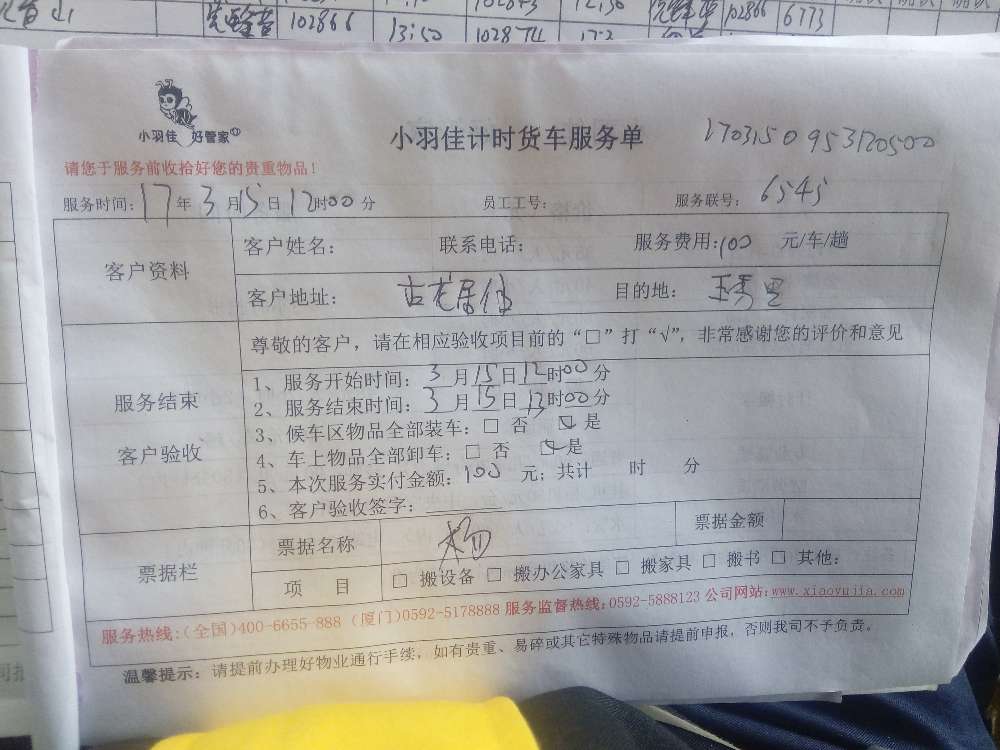 102866
13:50
102866
6773
小羽佳 好管家
小羽佳计时货车服务单
1703150953120500
请您于服务前收拾好您的贵重物品！
服务时间：17年3月15日12时00分 员工工号： 服务联号：6545
客户资料
客户姓名： 联系电话： 服务费用：100 元/车/趟
客户地址： 目的地：玉秀里
尊敬的客户，请在相应验收项目前的“□”打“√”，非常感谢您的评价和意见
服务结束
客户验收
1、服务开始时间：3月15日12时00分
2、服务结束时间：3月15日13时00分
3、候车区物品全部装车：□ 否 ☑ 是
4、车上物品全部卸车：□ 否 ☑ 是
5、本次服务实付金额：100 元；共计 时 分
6、客户验收签字：
票据栏
票据名称 票据金额
项 目 □ 搬设备 □ 搬办公家具 □ 搬家具 □ 搬书 □ 其他：
服务热线：（全国）400-6655-888（厦门）0592-5178888 服务监督热线：0592-5888123 公司网站：www.xiaoyujia.com
温馨提示：请提前办理好物业通行手续，如有贵重、易碎或其它特殊物品请提前申报，否则我司不予负责。